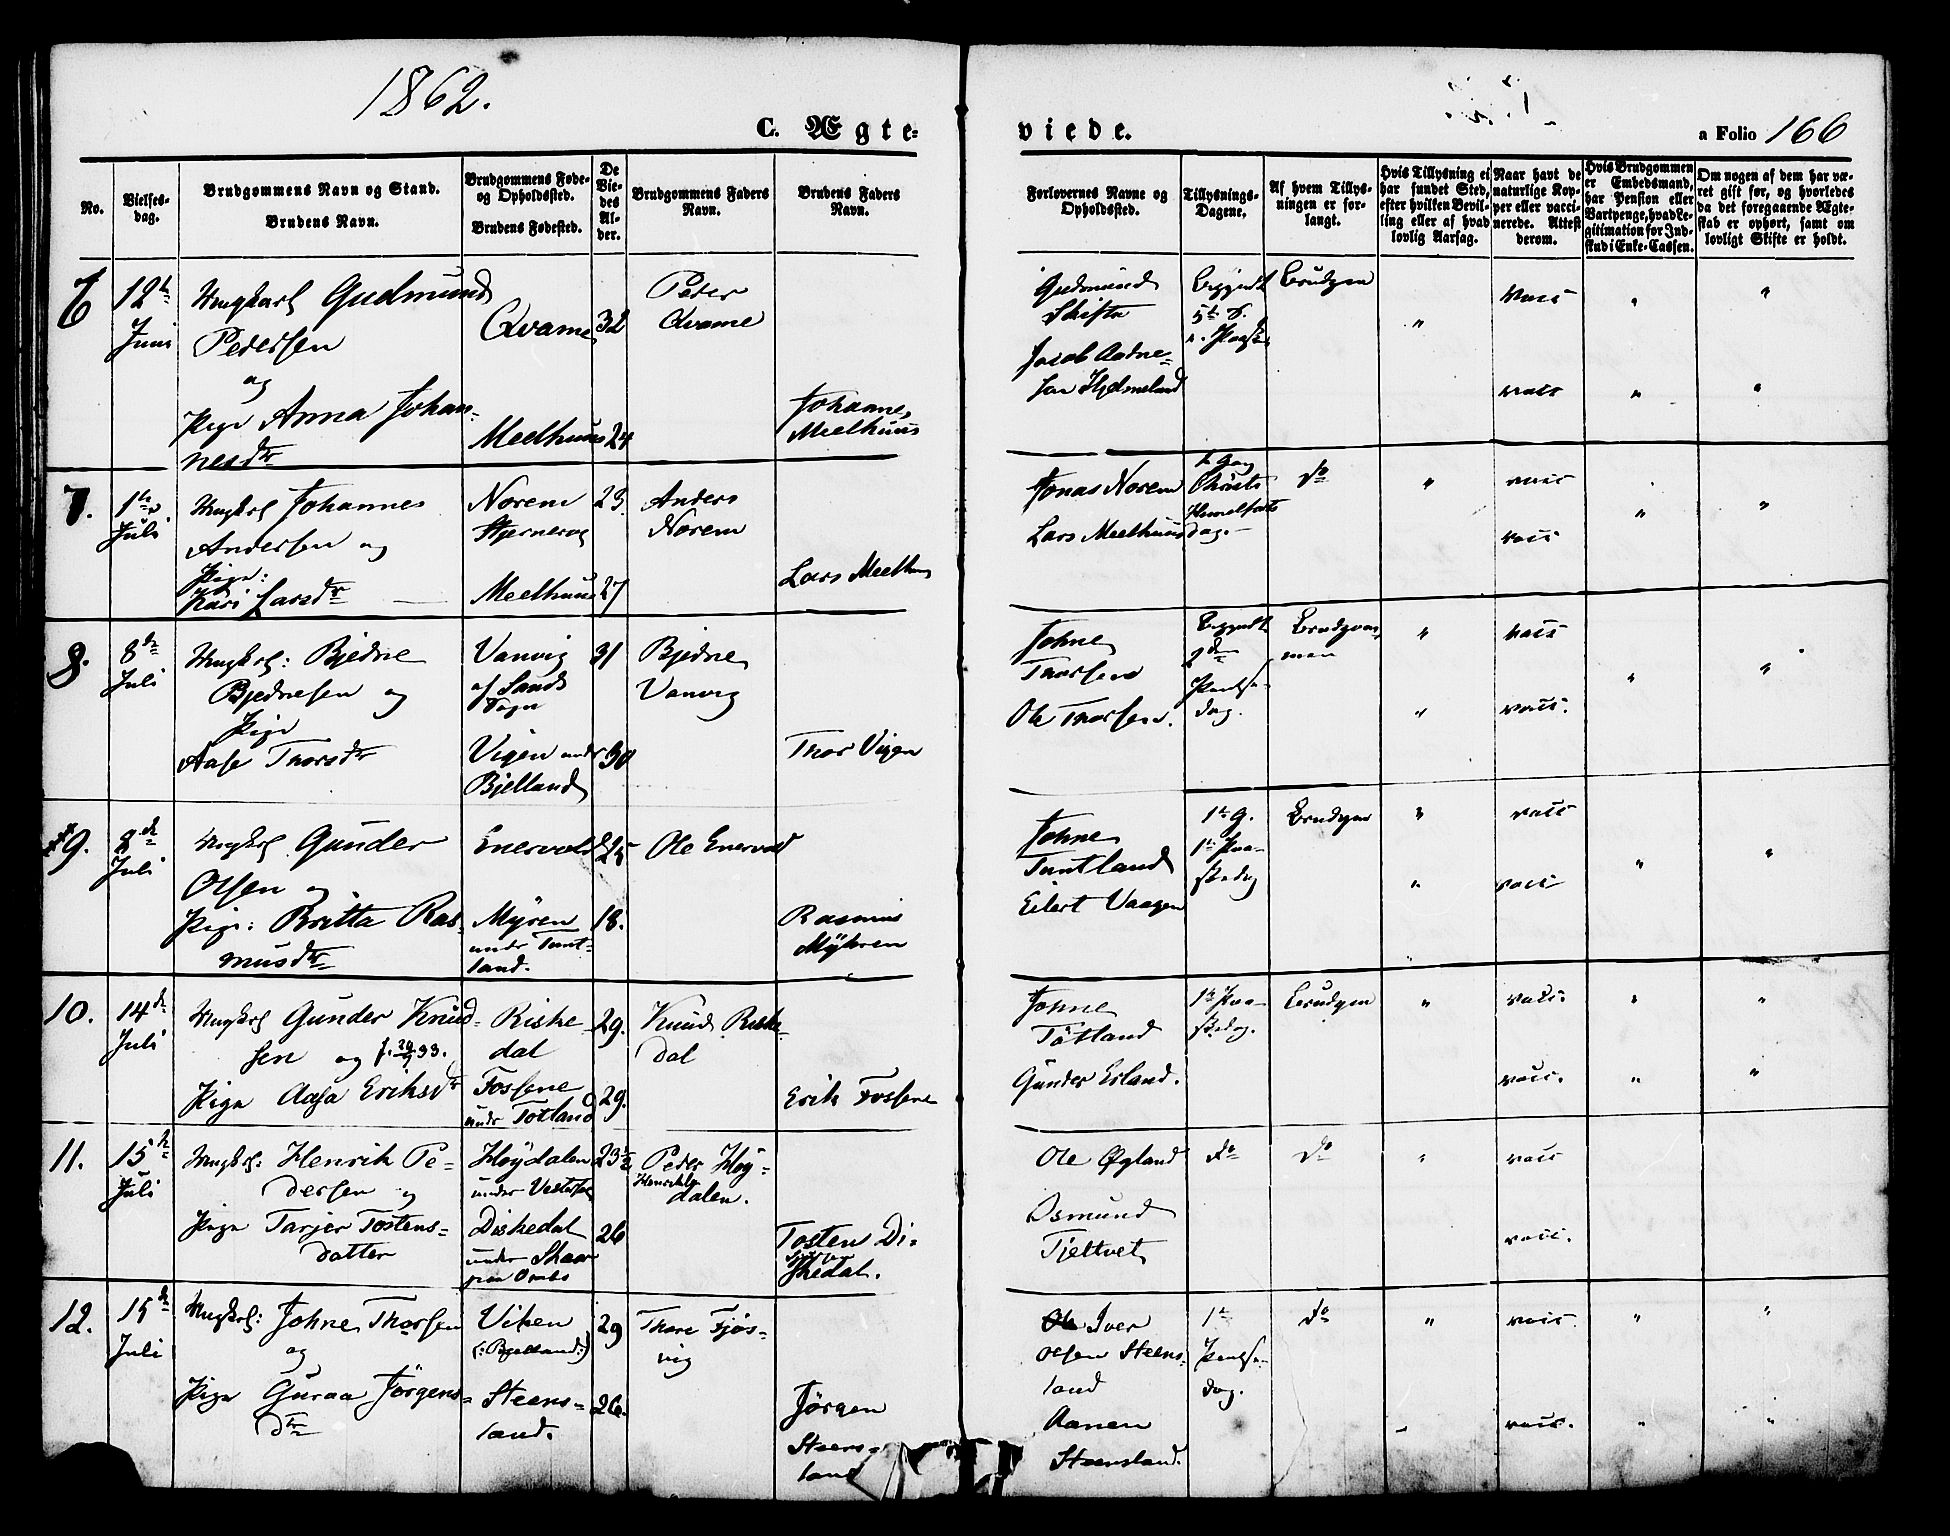 1862.
C. Ægte-
viede.
a Folio 166
No.
Vielses-
dag.
Brudgommens Navn og Stand.
Brudens Navn.
Brudgommens Føde-
og Opholdssted.
Brudens Fødested.
De
Vie-
des
Al-
der.
Brudgommens Faders
Navn.
Brudens Faders
Navn.
Forlovernes Navne og
Opholdssted.
Tillysnings-
Dagene.
Af hvem Tillys-
ningen er for-
langt.
Hvis Tillysning ei
har fundet Sted,
efter hvilken Bevil-
ling eller af hvad
lovlig Aarsag.
Naar havt de
naturlige Kop-
per eller vacci-
nerede. Attest
derom.
Hvis Brudgommen
er Embedsmand,
har Pension eller
Vartpenge, hvad Le-
gitimation for Ind-
skud i Enke-Cassen.
Om nogen af dem har væ-
ret gift før, og hvorledes
da det foregaaende Ægte-
skab er ophørt, samt om
lovligt Skifte er holdt.
6
12te
Juni
Ungkarl Gudmund
Pedersen
og
Pige Anna Johan-
nesdtr
Qvame 32
Meelhuus 24
Peder
Qvame
Johannes
Meelhuus
Gudmund
Skiftu
Jacob Aadne-
sen Hjelmeland
Begyndt
5te S.
e. Paaske
Brudgom
"
vacc
"
"
vacc
"
"
7.
1ste
Juli
Ungkarl Johannes
Andersen og
Pige:
Kari Larsdtr
Norem 23.
Stjernerøe
Meelhuus 27
Anders
Norem
Lars Meelhuus
Jonas Norem
Lars Meelhuus
1. Gang
Christi
Himmelfarts
dag.
do
"
vacc
vacc
"
"
8.
8de
Juli
Ungkarl: Bjedne
Bjednesen og
Pige
Aase Thorsdtr
Vanvig 31
af Sands
Sogn
Vigen under 30
Bjelland
Bjedne
Vanvig
Thor Vigen
Johne
Thorsen
Ole Thorsen.
Begyndt
2den
Pintse-
dag.
Brudgom-
men
"
vacc
"
"
"
vacc.
9.
8de
Juli
Ungkarl Gunder
Olsen og
Pige: Britta Ras-
musdtr
Enervold 25
Myren 18.
under Tunt-
land.
Ole Enervold
Rasmus
Myhren
Johne
Tuntland
Eilert Vaagen
1te G.
1te Paa-
skedag
Brudgom
"
vacc
"
"
"
vacc
"
10.
14de
Juli
Ungkarl Gunder Knud-
sen og f. 33.
Pige Aasa Eriksdtr
Riske- 29.
dal
Fossene 29.
under Totland
Knud Riske-
dal
Erik Fossene
Johne
Totland
Gunder Erland.
1te Paa-
skedag.
Brudgom
"
vacc.
"
"
vacc.
"
"
11.
15de
Juli
Ungkarl: Henrik Pe-
dersen og
Pige Tarjer Tostens-
datter
Høydalen 23½
under
Diskedal 26
under Skaar
Peder Høy-
dalen.
Tosten Di-
skedal.
Ole Øgland
Osmund
Tjeltvet
do
do
"
vacc
vacc.
12.
15de
Juli
Ungkarl: Johne Thorsen
og
Pige Guraa Jørgens-
dtr
Viken 29
(:Bjelland:)
Steens- 26.
land.
Thore Fjøs-
vig
Jørgen
Steens-
land
Iver
Olsen Steens-
land
Aanen
Steensland.
1te
Pintse-
dag.
do
"
vacc.
"
"
vacc.
"
"